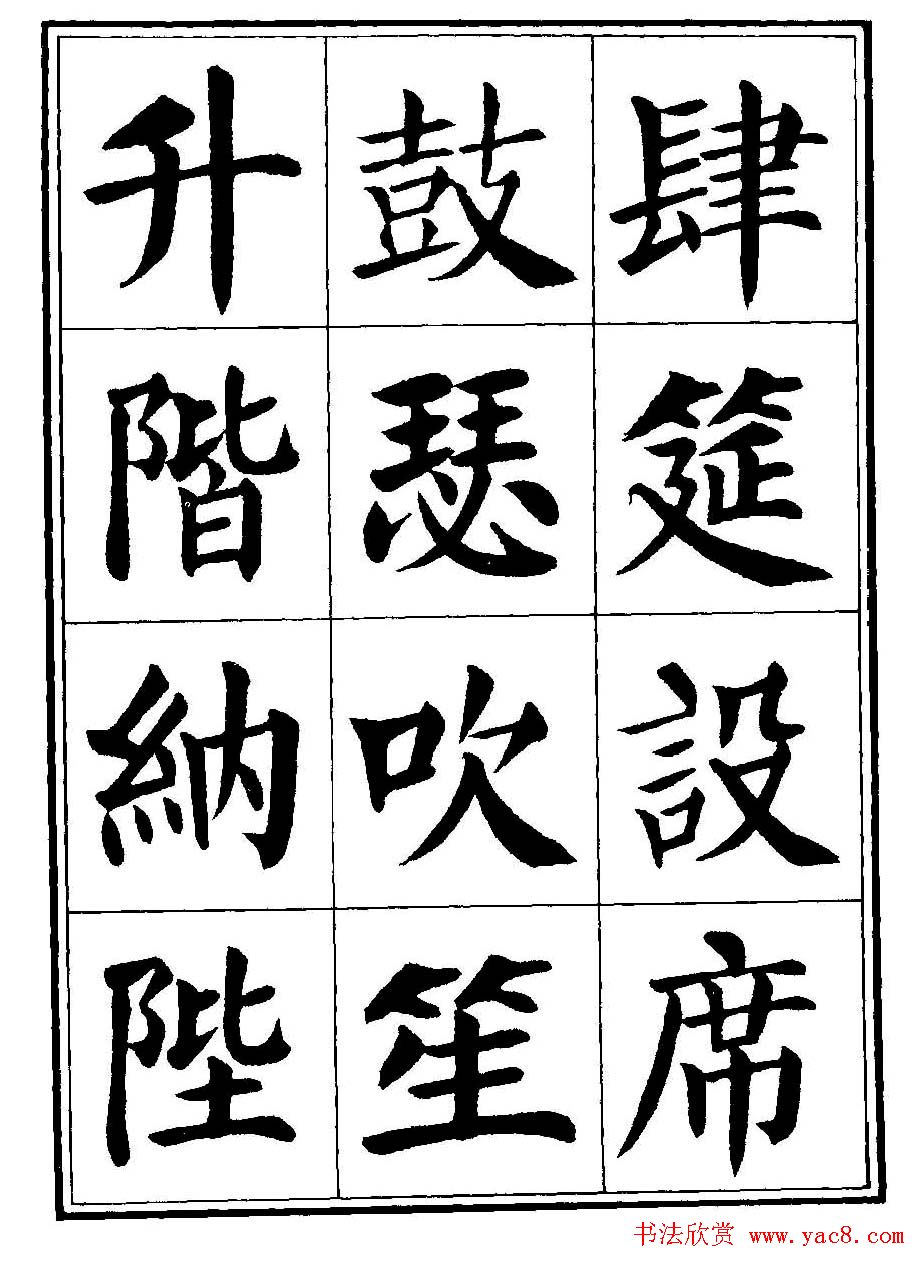 肆筵設席
鼓瑟吹笙
升階納陛
书法欣赏 www.yac8.com